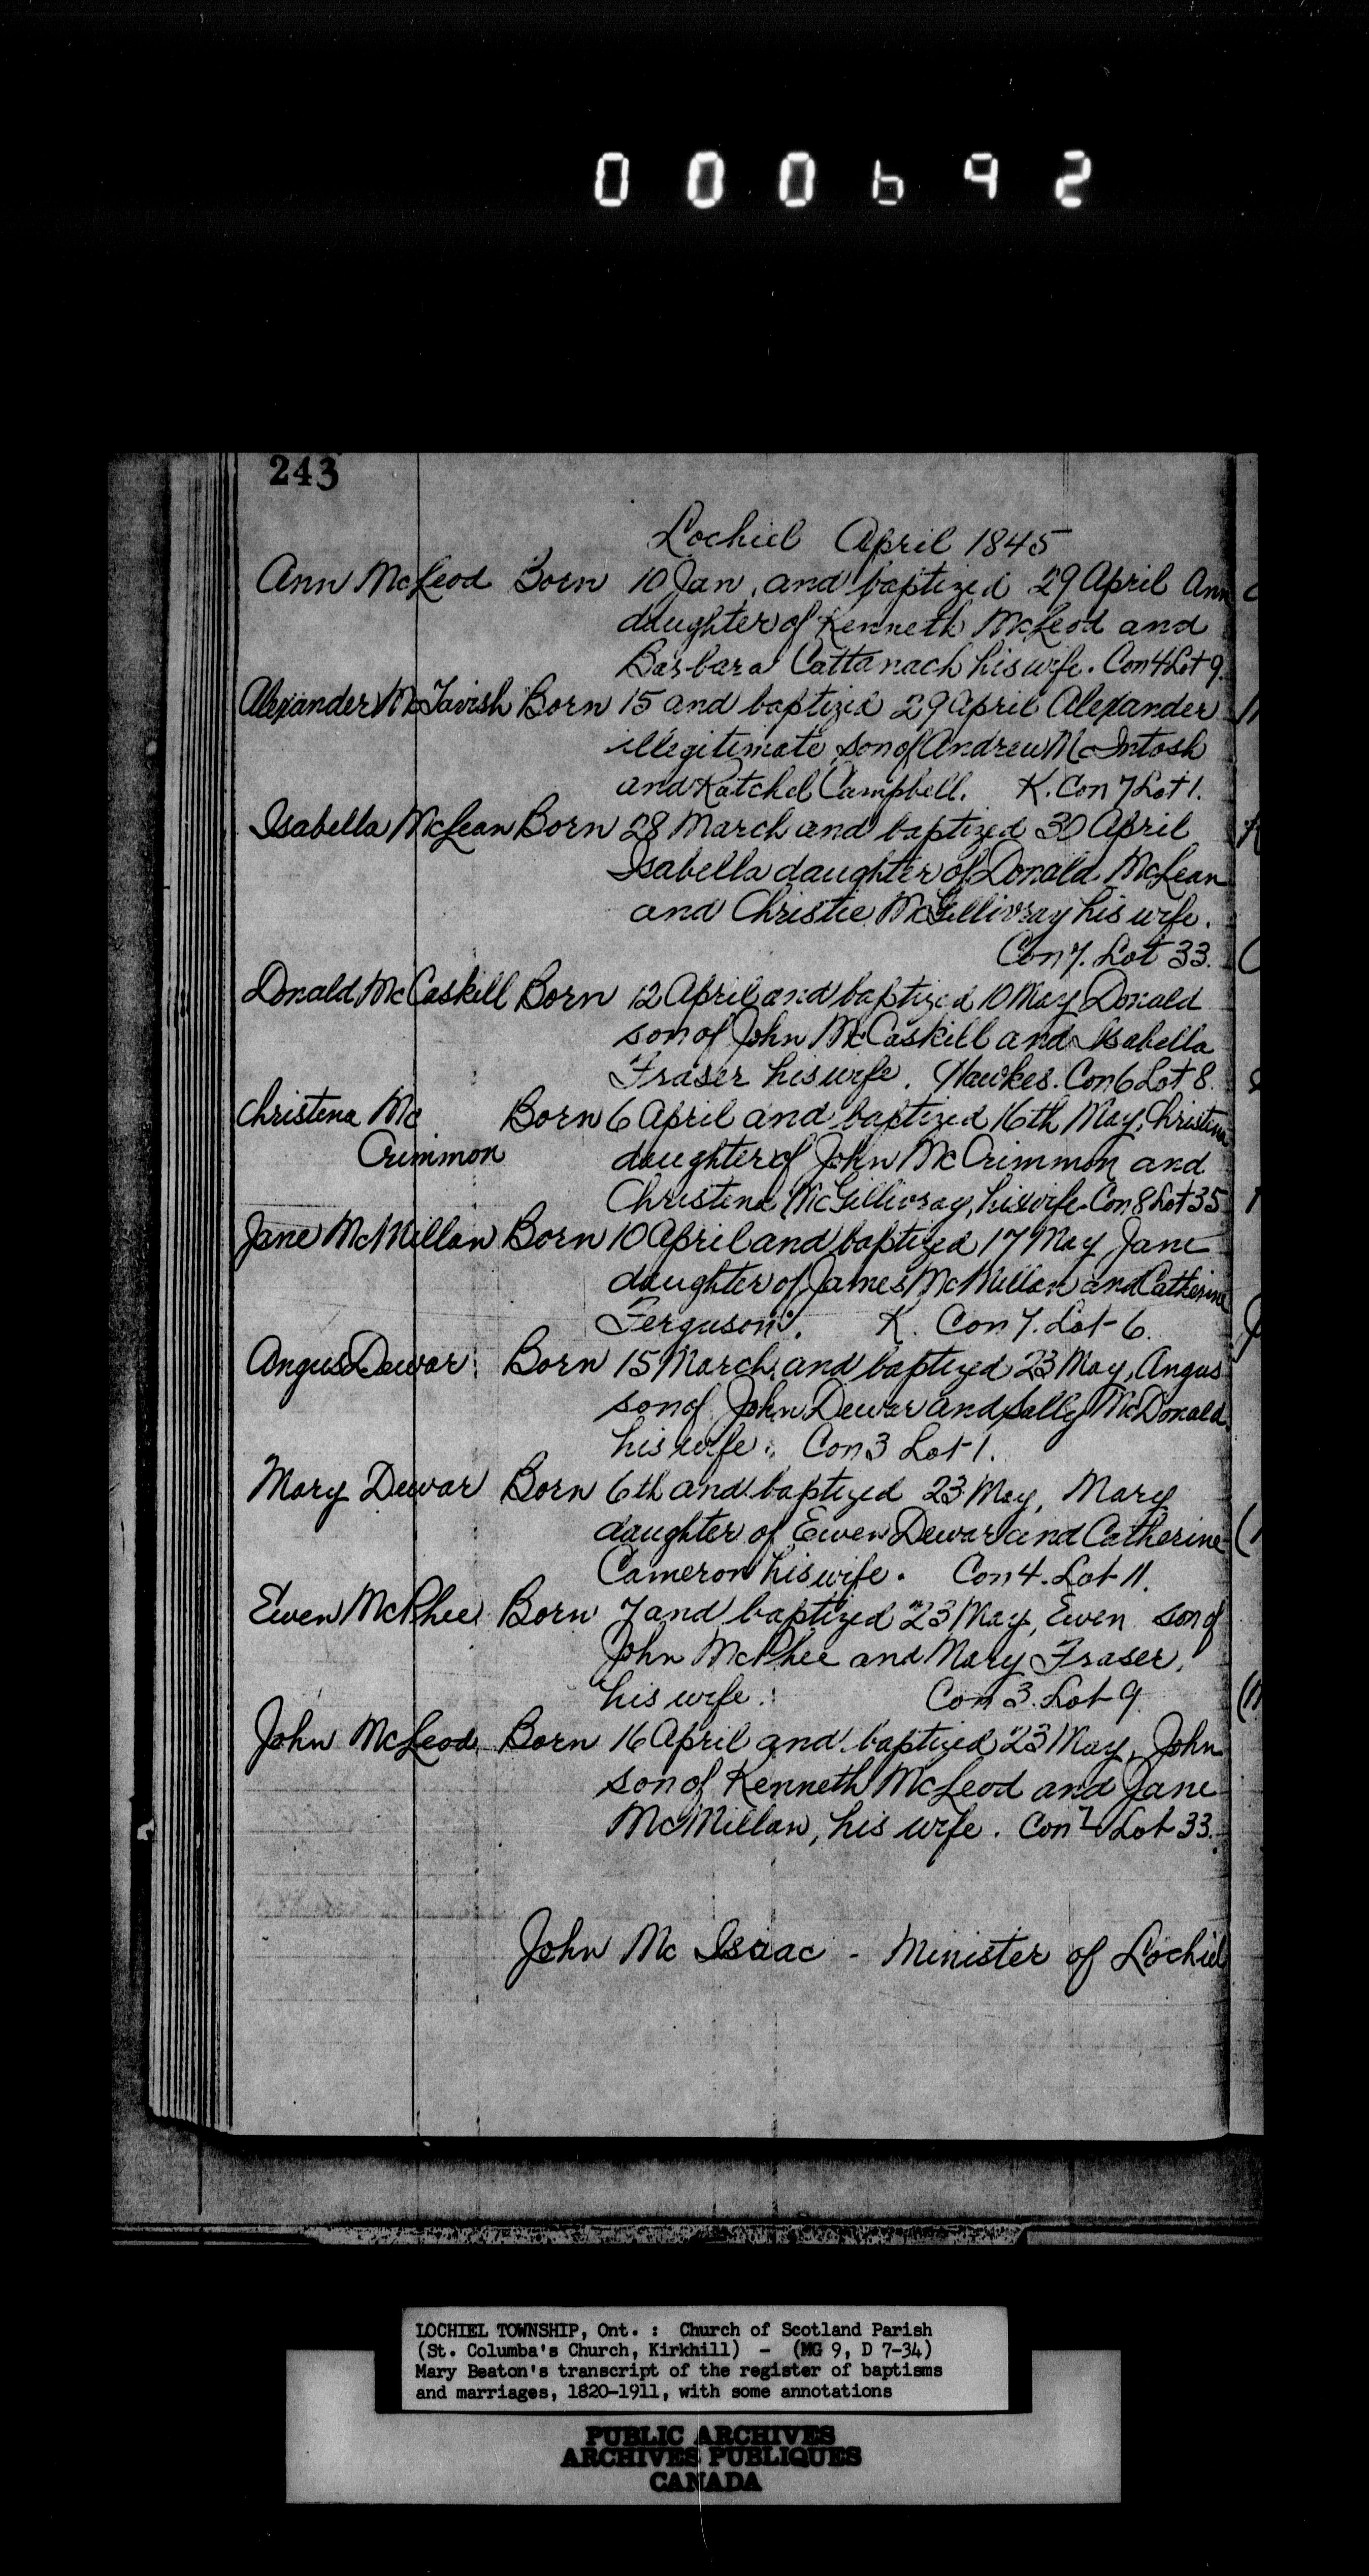 000692
243
Lochiel April 1845
Ann McLeod Born 10 Jan, and baptized 29 April Ann
daughter of Kenneth McLeod and
Barbara Cattanach his wife. Con 4 Lot 9.
Alexander McTavish Born 15 and baptized 29 April Alexander
illegitimate son of Andrew McIntosh
and Ratchel Campbell. K. Con 7 Lot 1.
Isabella McLean Born 28 March and baptized 30 April
Isabella daughter of Donald McLean
and Christie McGillivray his wife.
Con 7. Lot 33.
Donald McCaskill Born 12 April and baptized 10 May Donald
son of John McCaskill and Isabella
Fraser his wife. Hawkes. Con 6 Lot 8.
Christena Mc Born 6 April and baptized 16th May, Christena
Crimmon daughter of John McCrimmon and
Christena McGillivray, his wife. Con 8 Lot 35
Jane McMillan Born 10 April and baptized 17 May Jane
daughter of James McMillan and Catherine
Ferguson. K. Con 7. Lot 6.
Angus Dewar Born 15 March, and baptized 23 May, Angus
son of John Dewar and Sally McDonald
his wife. Con 3 Lot 1.
Mary Dewar Born 6th and baptized 23 May, Mary
daughter of Ewen Dewar and Catherine
Cameron his wife. Con 4. Lot 11.
Ewen McPhee Born 7 and baptized 23 May, Ewen son of
John McPhee and Mary Fraser,
his wife. Con 3. Lot 9
John McLeod Born 16 April and baptized 23 May, John
son of Kenneth McLeod and Jane
McMillan, his wife. Con 7 Lot 33.
John Mc Isaac - Minister of Lochiel
LOCHIEL TOWNSHIP, Ont. : Church of Scotland Parish
(St. Columba's Church, Kirkhill) - (MG 9, D 7-34)
Mary Beaton's transcript of the register of baptisms
and marriages, 1820-1911, with some annotations
PUBLIC ARCHIVES
ARCHIVES PUBLIQUES
CANADA